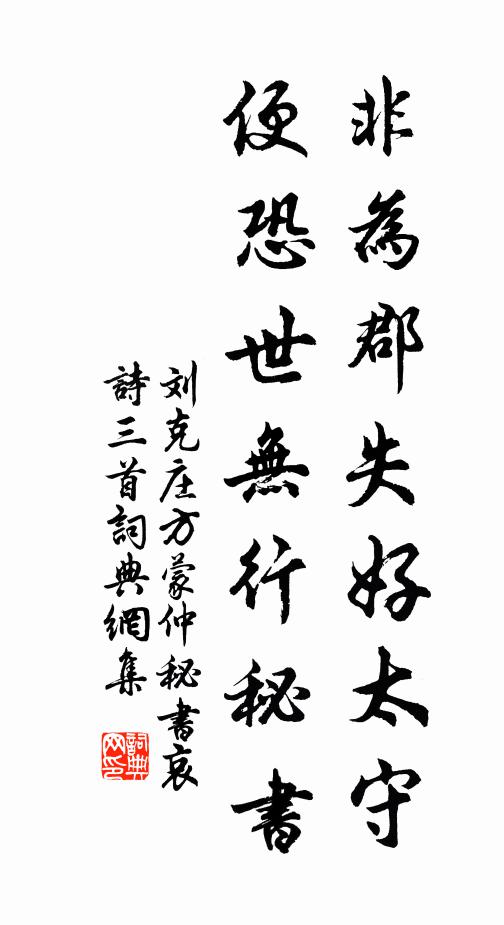 非為郡失好太守
便恐世無行秘書
刘克庄方蒙仲秘書哀
詩三首詞典網集
詞典
网印